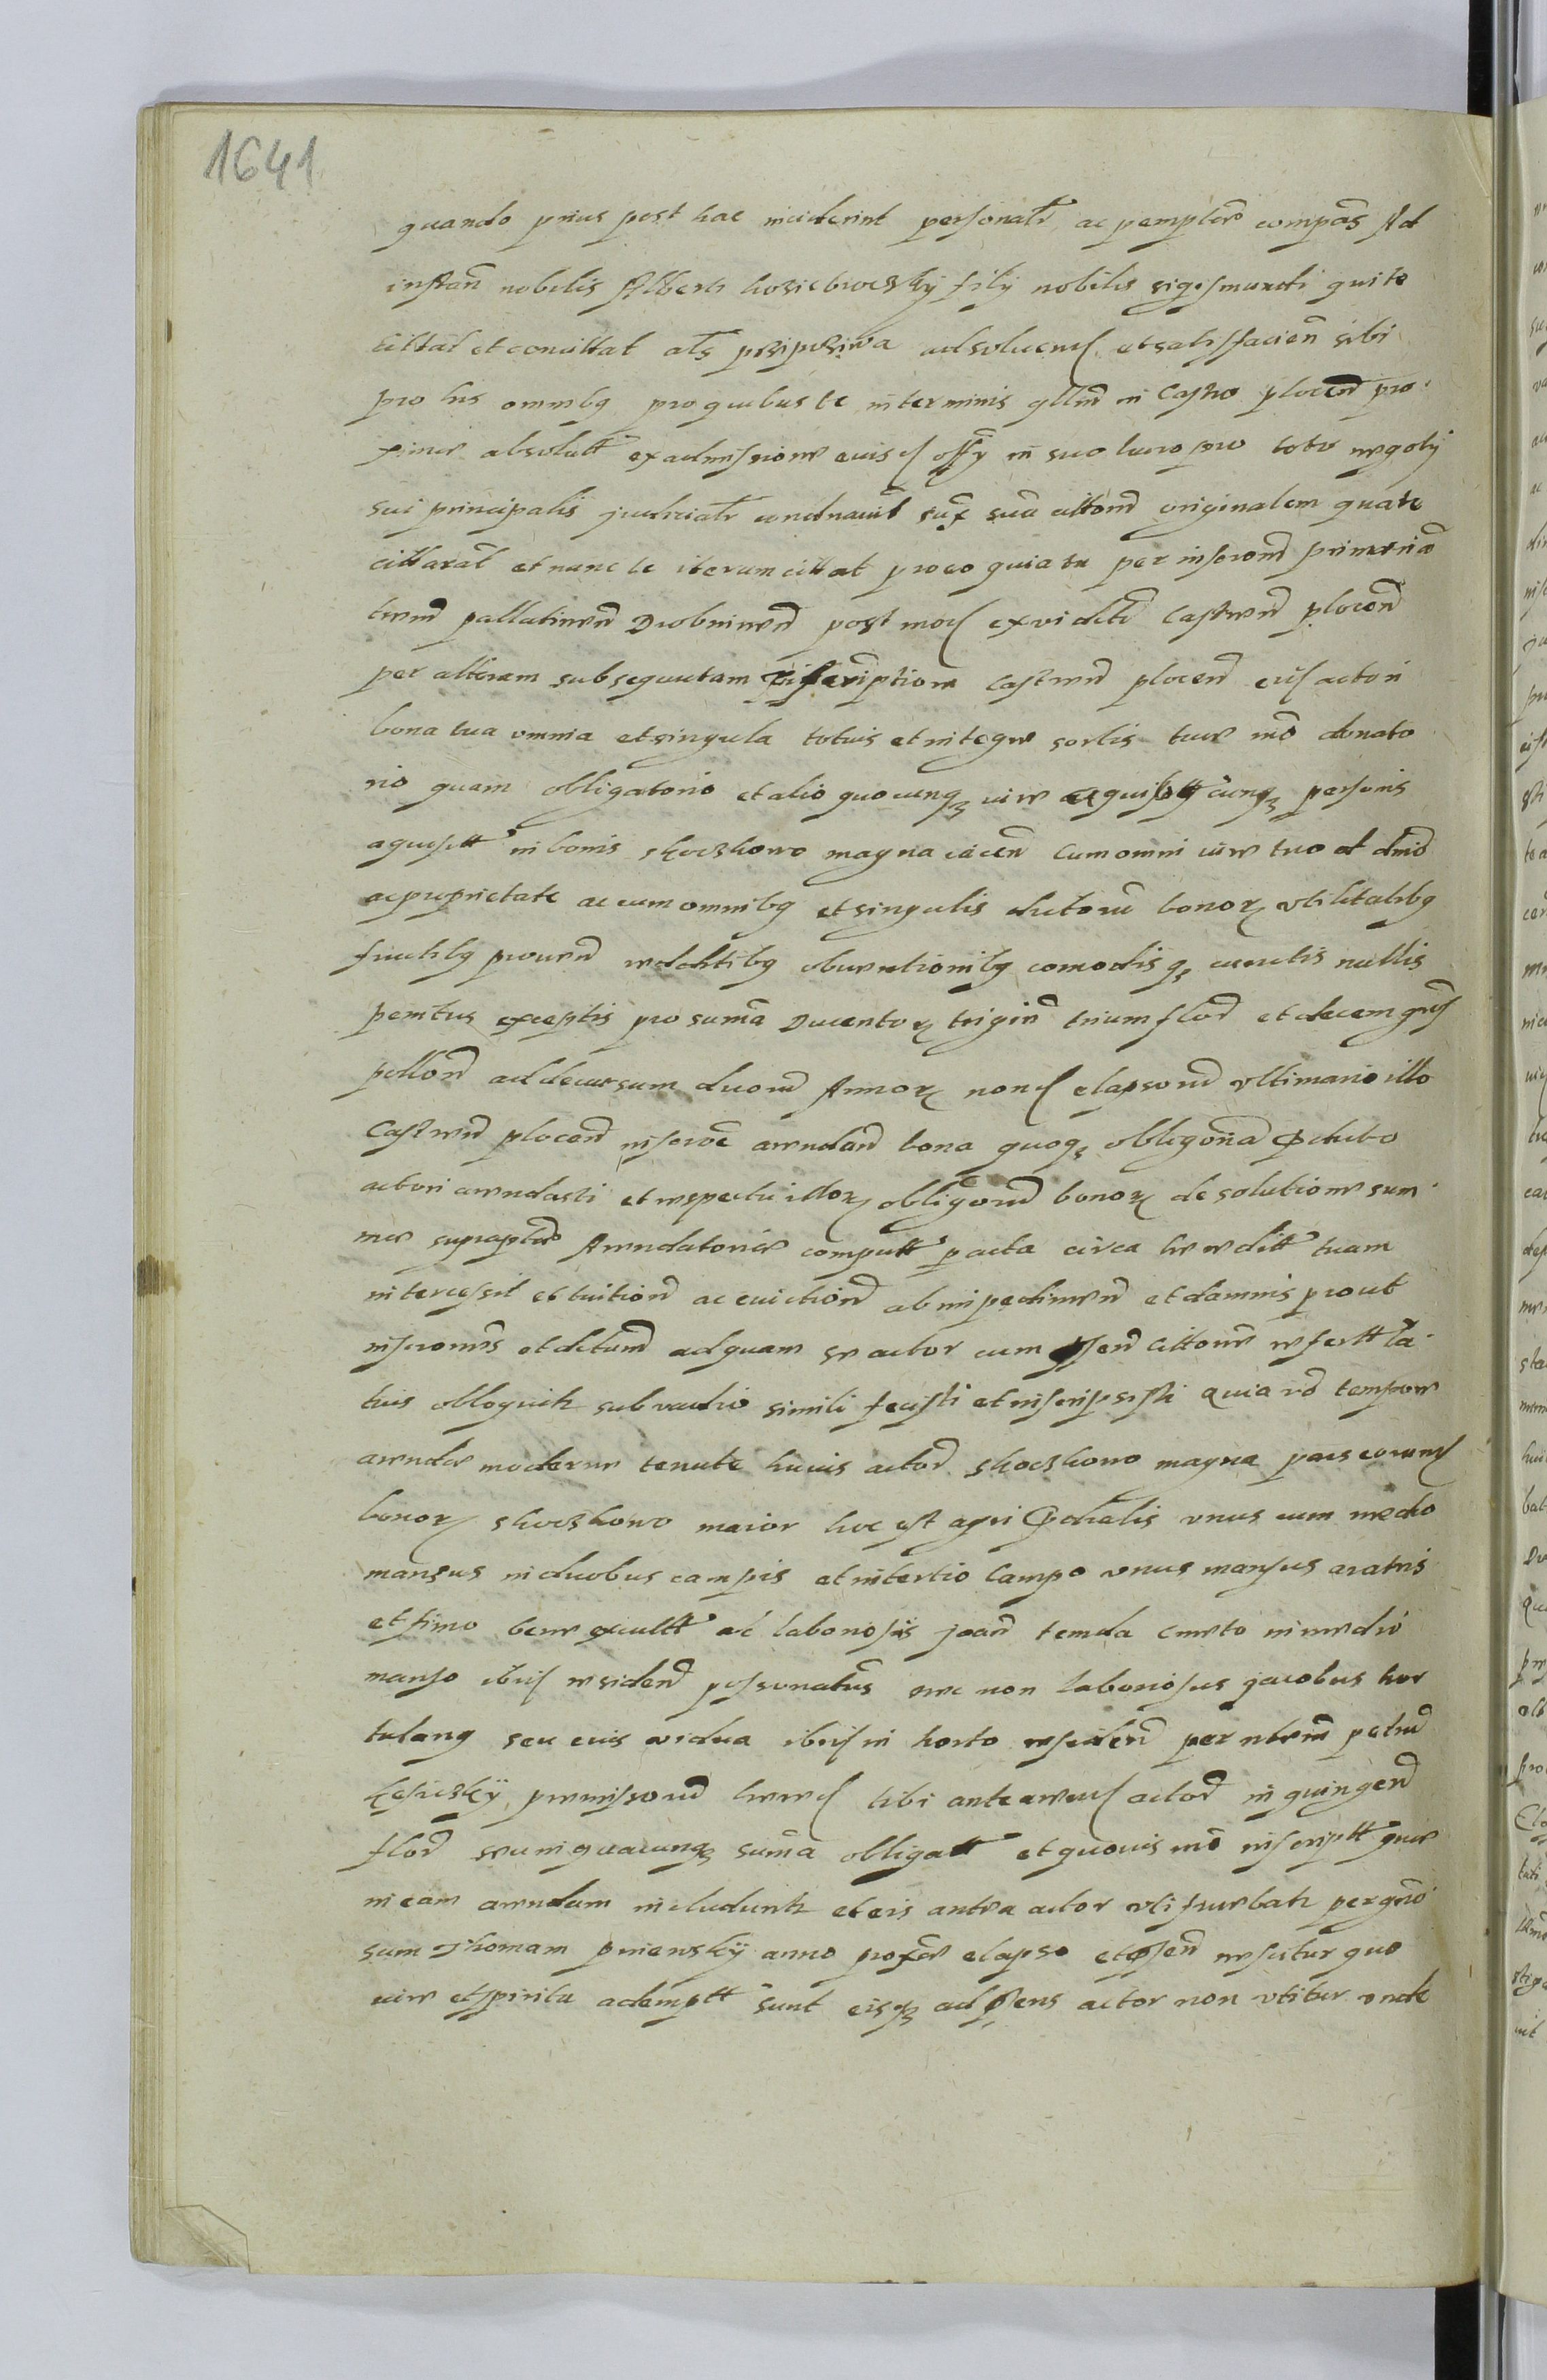 1641
quando prius post hac inciderint personalr ac pempterie compas Ad
instan nobilis Alberti kosiebrocsky filij nobilis sigismundi qui te
cittat et concittat als ad soluend et satisfacien sibi
pro his omnibq pro quibus te in terminis in Castro plocen pro
xime absolutt ex admissione eius offy in suo lucro pro toto negotij
sui principalis judicialr condnauit sua cittone originalem qua te
cittarat et nunc te iterum cittat pro eo quia tu per inscrone primaria
terrm pallatinen Drobninen post mod ex vi dcte Castren plocen
per alteram subsequutam inscriptione castren plocen eid actori
bona tua omnia et singula totius et integre sortis tue mo donato
rio quam obligatorio et alio quocunq iure a quibscunq personis
aquisitt in bonis skoczkowo magna iacen cum omni iure tuo et dnio
ac proprietate ac cum omnibq et singulis dictorum bonor vtilitatibq
fructibq prouen redditibq obuentionibq comodisq cunctis nullis
penitus exceptis pro suma Ducentor trigin trium flor et decem gros
pollon ad decursum duorum Annor nond elapsorum vltimario illo
Castren plocen inscroe arendand bona quoq obligona pdicto
actori arendasti et respectu illor obligorum bonor de solutione sum
me suprapte Arendatorie computt pacta circa hereditt tuam
intercessit et tuitione ac euictione ab impedimen et damnis prout
inscrones et dictand ad quam se actor cum pnti cittone refertt la
tius obloquit sub vadio simili fecisti et inscripsisti quia vo tempore
arende moderne tenute huius actor skoczkowo magna pars eorund
bonor skoczkowo maior hoc est agri pdialis vnus cum medio
mansus in duobus campis et in tertio campo vnus mansus aratris
et fimo bene excultt ac laboriosus joan temda cmeto in medio
manso ibid residen personatus nec non laboriosus jacobus hor
tulanq seu eius vidua ibid in horto residen per petrum
premissorum hered tibi anteaered actor in quingen
flor seu in quacunq suma obligatt et quouis mo inscriptt que
in eam arendam includunt et eis antea actor vti frebatr per gno
sum Thomam pniewsky anno proxe elapso et pnti nescitur quo
iure et spiritu ademptt sunt eisq ad pns actor non vtitur vnde